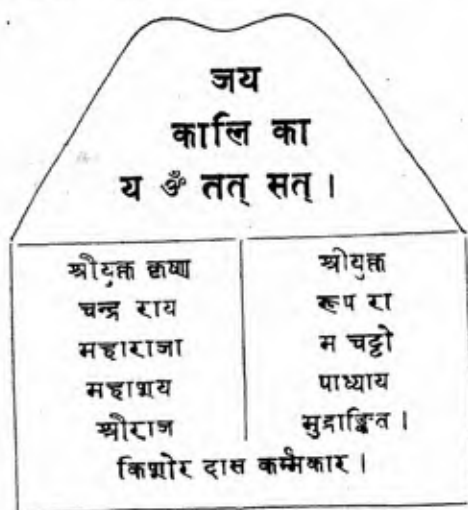 जय
कालि का
य ॐ तत् सत् ।
श्रीयुक्त कृष्ण
चन्द्र राय
महाराजा
महाशय
श्रीराज
श्रीयुक्त
रूप रा
म चट्टो
पाध्याय
मुद्राङ्कित ।
किशोर दास कर्म्मकार ।